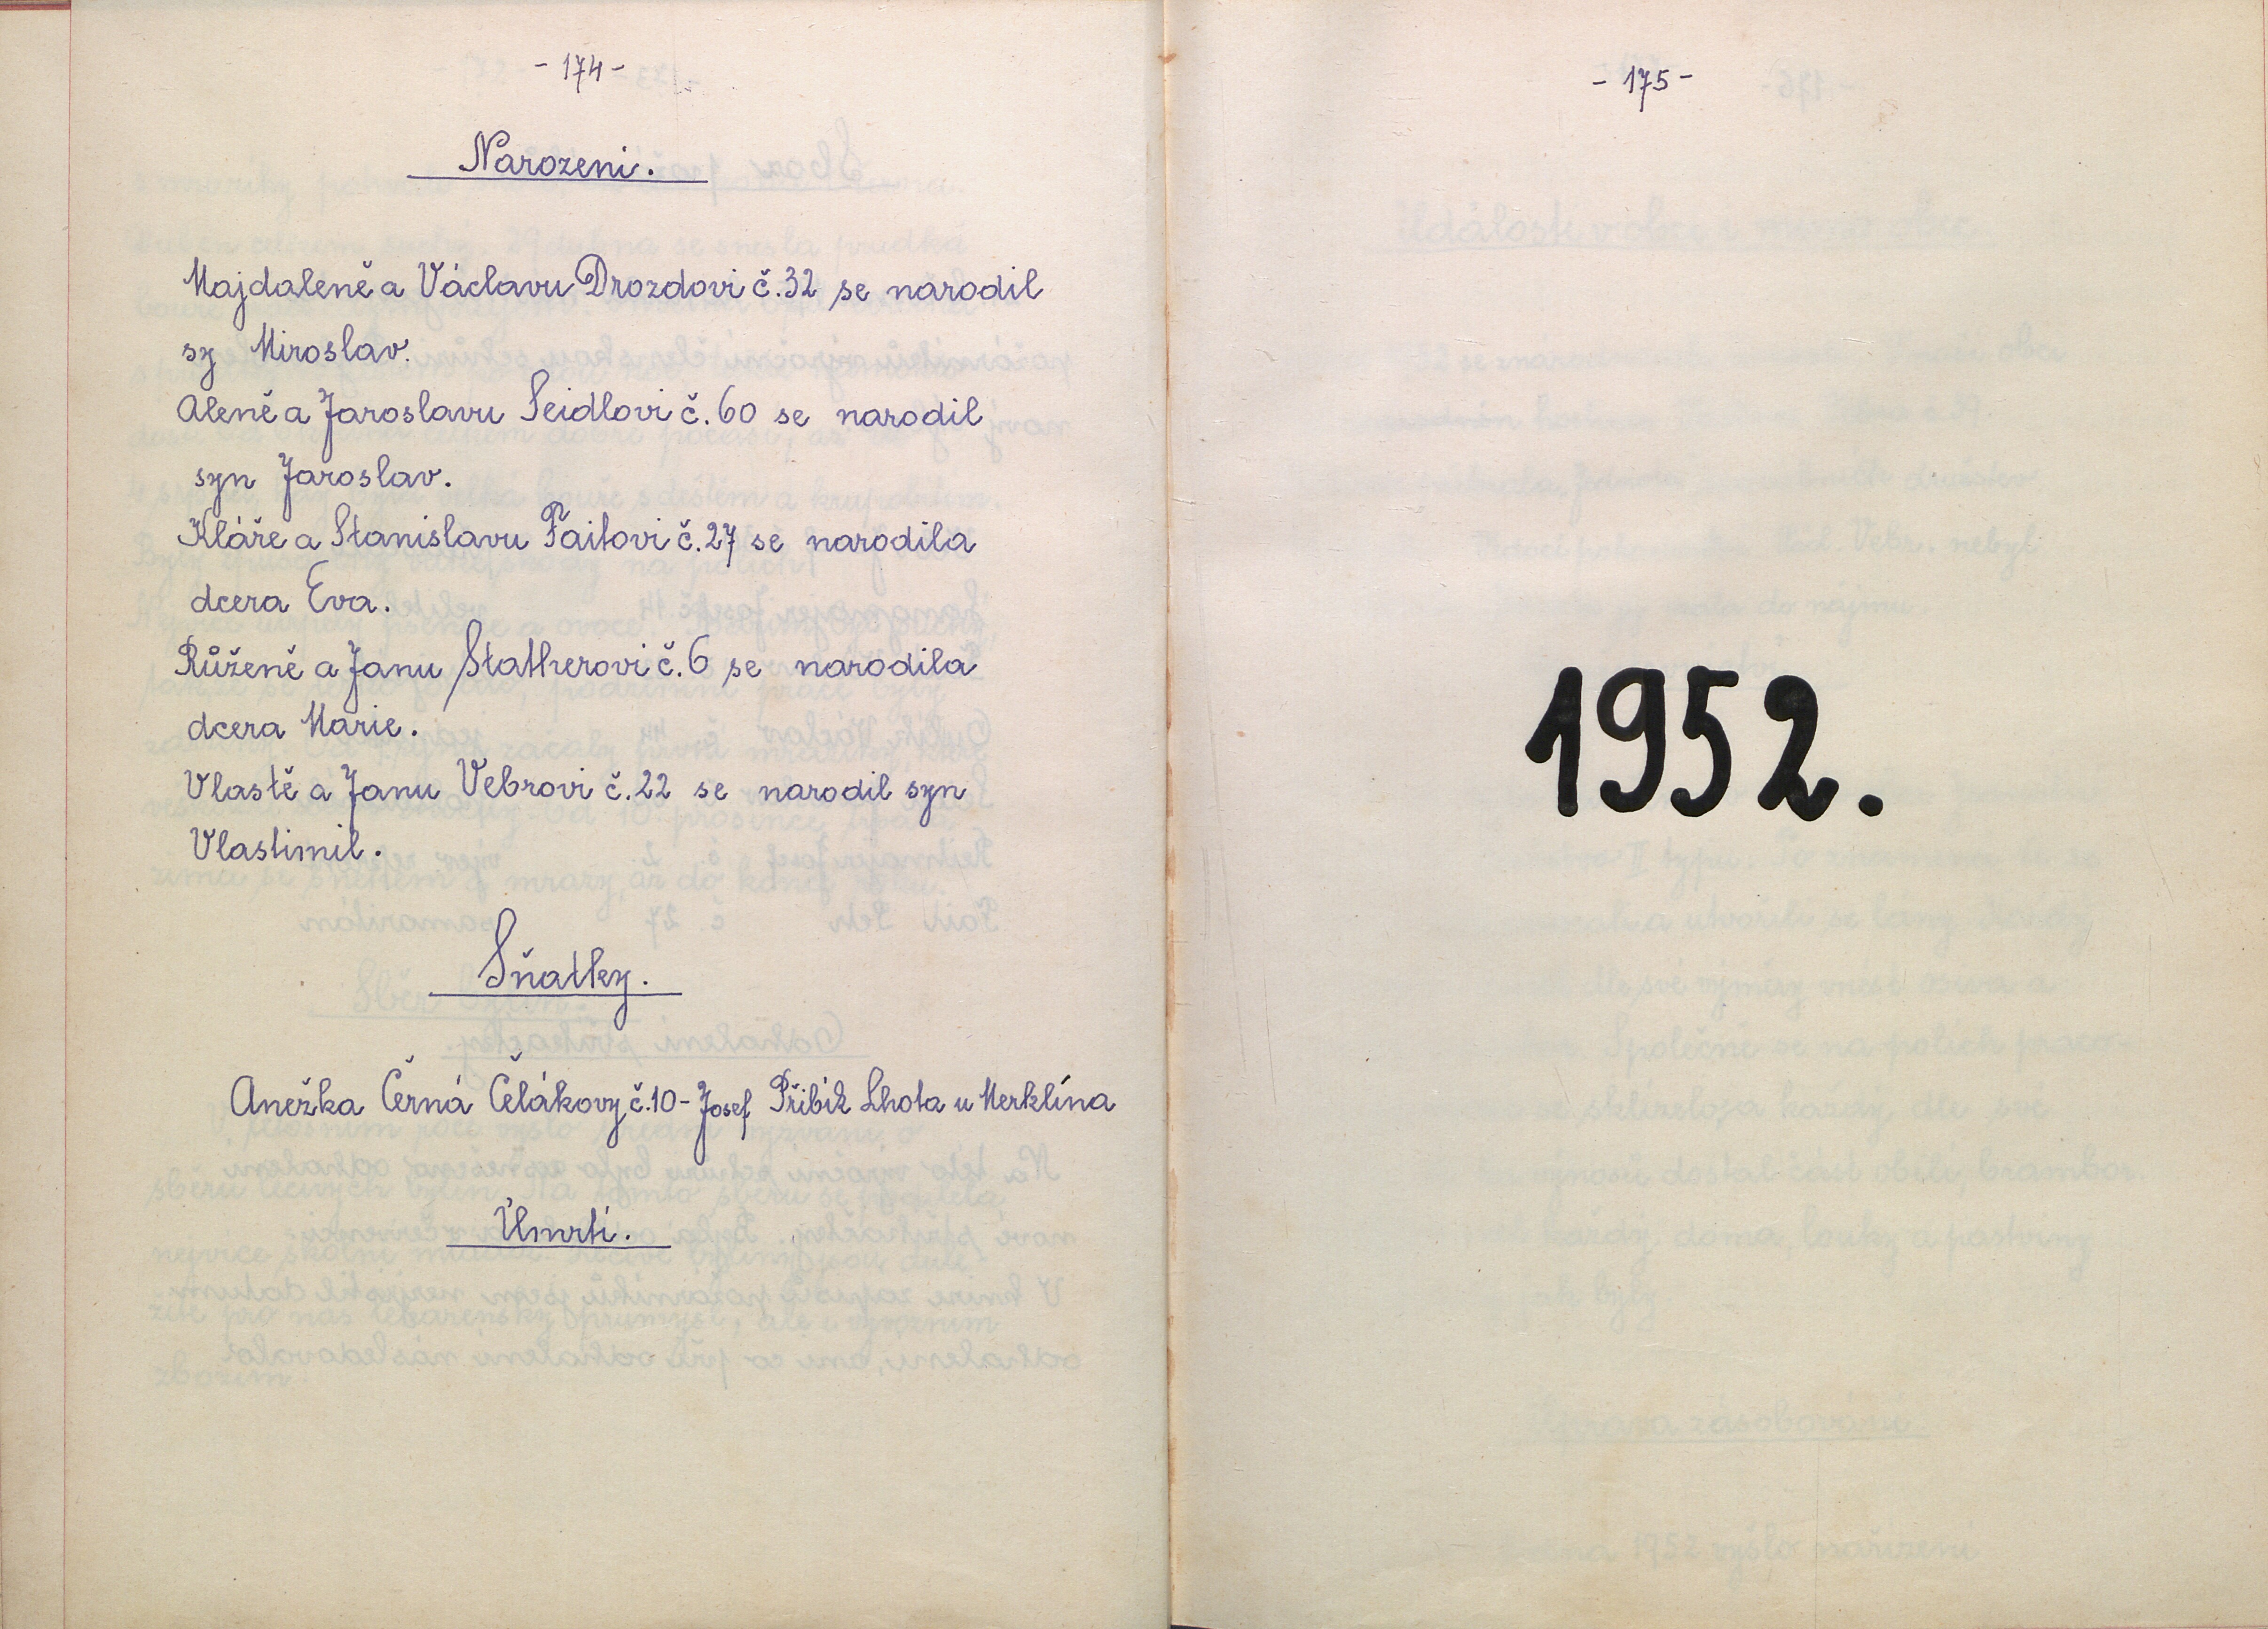 - 174 -
Narozeni.
Majdaleně a Václavu Drozdovi č.32 se narodil
sy Miroslav.
Aleně a Jaroslavu Seidlovi č.60 se narodil
syn Jaroslav.
Kláře a Stanislavu Faitovi č.27 se narodila
dcera Eva.
Růženě a Janu Statherovi č.6 se narodila
dcera Marie.
Vlastě a Janu Vebrovi č.22 se narodil syn
Vlastimil.
Sňatky.
Anežka Černá Čelákovy č.10 - Josef Přibík Lhota u Merklína
Úmrtí.
- 175 -
1952.